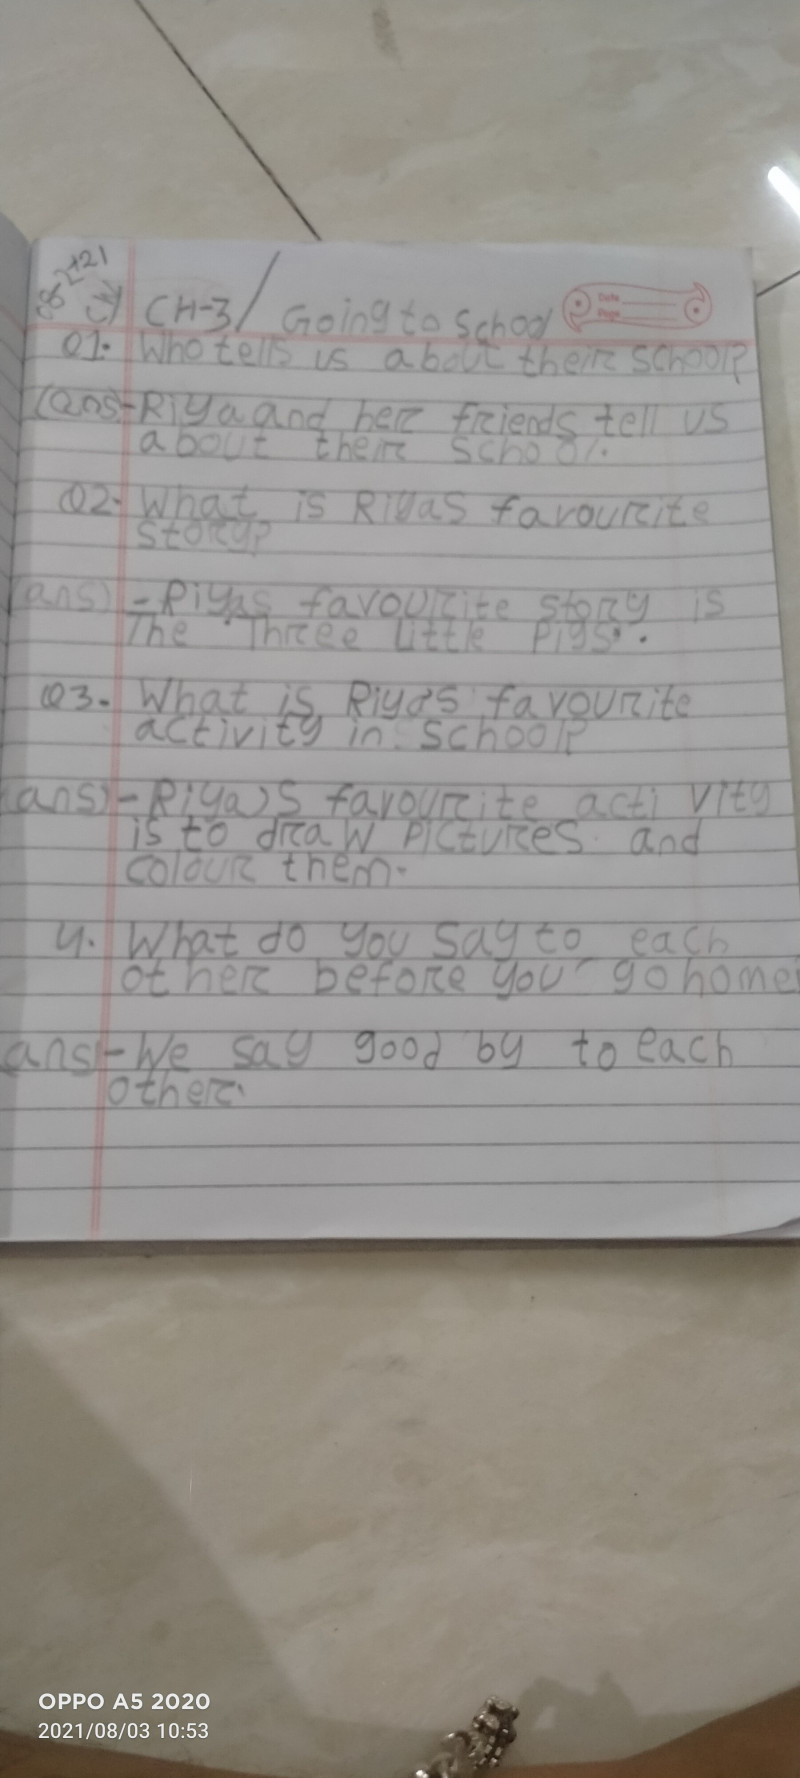 CH-3/ Going to School
Date
Page
Q1. Who tells us about their school?
(ans)-Riya and her friends tell us
about their school.
Q2- What is Riyas favourite
story?
(ans) -Riyas favourite story is
The Three little Pigs.
Q3. What is Riya's favourite
activity in school?
(ans)-Riya's favourite acti vity
is to draw pictures and
colour them.
4. What do you say to each
other before you go home
(ans)-We say good by to each
other.
OPPO A5 2020
2021/08/03 10:53